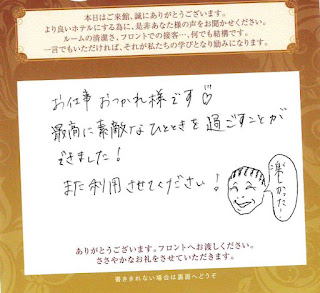 本日はご来館、誠にありがとうございます。
より良いホテルにする為に、是非あなた様の声をお聞かせください。
ルームの清潔さ、フロントでの接客…、何でも結構です。
一言でもいただければ、それが私たちの学びとなり励みになります。
お仕事 おつかれ様です♡
最高に素敵なひとときを過ごすことが
できました！
また利用させてください！
楽しかったー！
ありがとうございます。フロントへお渡しください。
ささやかなお礼をさせていただきます。
書ききれない場合は裏面へどうぞ